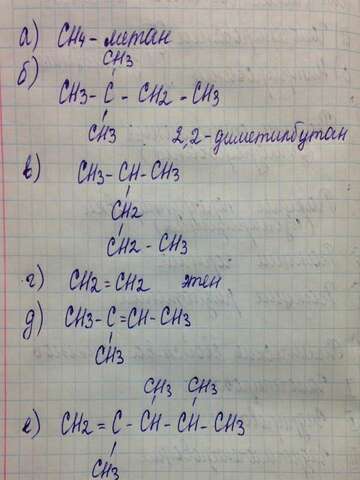 а) CH4 - метан
CH3
б) CH3 - C - CH2 - CH3
CH3
2,2-диметилбутан
в) CH3 - CH - CH3
CH2
CH2 - CH3
г) CH2 = CH2 этен
д) CH3 - C = CH - CH3
CH3
CH3 CH3
е) CH2 = C - CH - CH - CH3
CH3